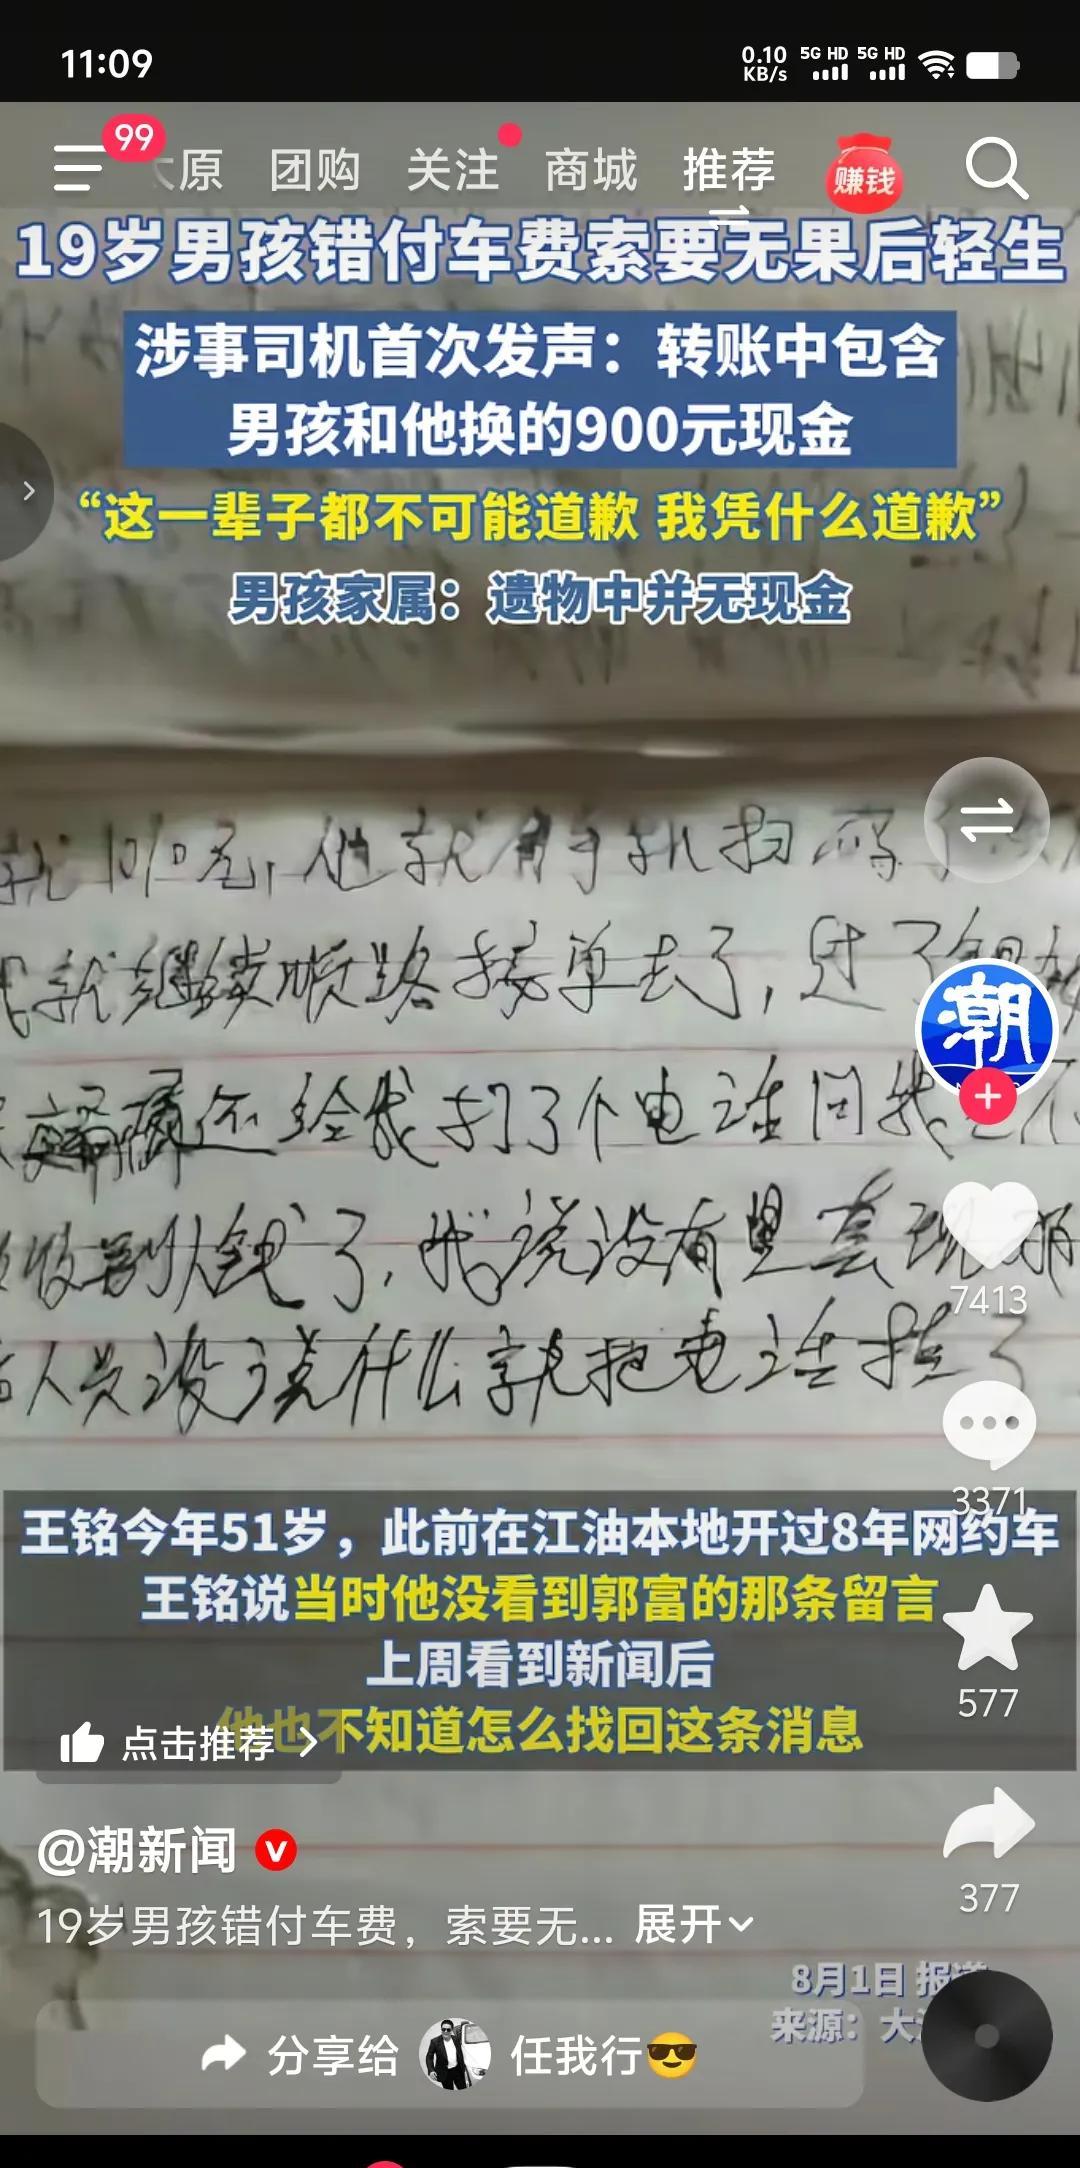 11:09
0.10 KB/s 5G HD 5G HD
99
原 团购 关注 商城 推荐 赚钱
19岁男孩错付车费索要无果后轻生
涉事司机首次发声：转账中包含
男孩和他换的900元现金
“这一辈子都不可能道歉 我凭什么道歉”
男孩家属：遗物中并无现金
他就用手机扫码
就继续顺路接单去了，过了
还给我打了个电话问我
收到钱了，我说没有
人员没说什么就把电话挂了
潮
7413
3371
王铭今年51岁，此前在江油本地开过8年网约车
王铭说当时他没看到郭富的那条留言
上周看到新闻后
他也不知道怎么找回这条消息
点击推荐
577
@潮新闻
19岁男孩错付车费，索要无... 展开
377
8月1日 报道
来源：大
分享给 任我行😎